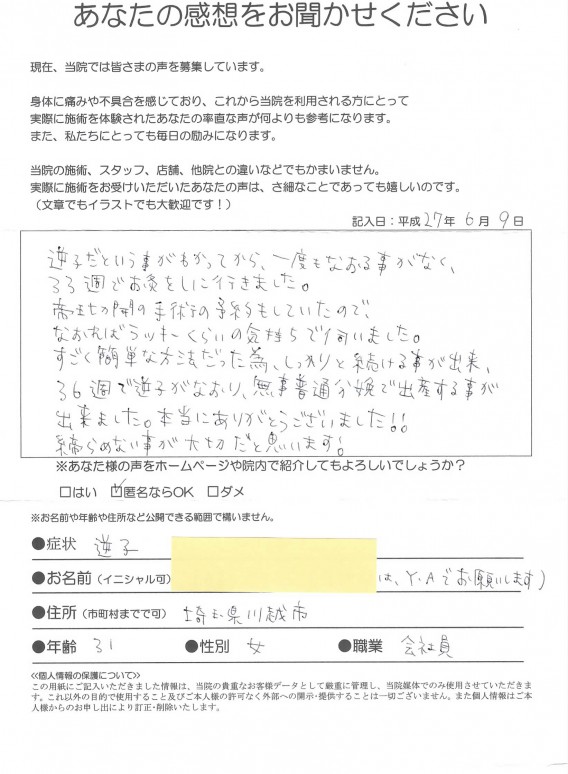 あなたの感想をお聞かせください
現在、当院では皆さまの声を募集しています。
身体に痛みや不具合を感じており、これから当院を利用される方にとって
実際に施術を体験されたあなたの率直な声が何よりも参考になります。
また、私たちにとっても毎日の励みになります。
当院の施術、スタッフ、店舗、他院との違いなどでもかまいません。
実際に施術をお受けいただいたあなたの声は、さ細なことであっても嬉しいのです。
（文章でもイラストでも大歓迎です！）
記入日：平成 27年 6月 9日
逆子だという事がわかってから、一度もなおる事がなく、
33週でお灸をしに行きました。
帝王切開の手術の予約もしていたので、
なおればラッキーくらいの気持ちで伺いました。
すごく簡単な方法だった為、しっかりと続ける事が出来、
36週で逆子がなおり、無事普通分娩で出産する事が
出来ました。本当にありがとうございました!!
締らめない事が大切だと思います!
※あなた様の声をホームページや院内で紹介してもよろしいでしょうか？
□はい ☑匿名ならOK □ダメ
※お名前や年齢や住所など公開できる範囲で構いません。
●症状 逆子
●お名前（イニシャル可） は、Y・Aでお願いします)
●住所（市町村までで可） 埼玉県川越市
●年齢 31 ●性別 女 ●職業 会社員
≪個人情報の保護について≫
この用紙にご記入いただきました情報は、当院の貴重なお客様データとして厳重に管理し、当院媒体でのみ使用させていただきま
す。これ以外の目的で使用すること及びご本人様の許可なく外部への開示・提供することは一切ございません。また個人情報はご本
人様からのお申し出により訂正・削除いたします。